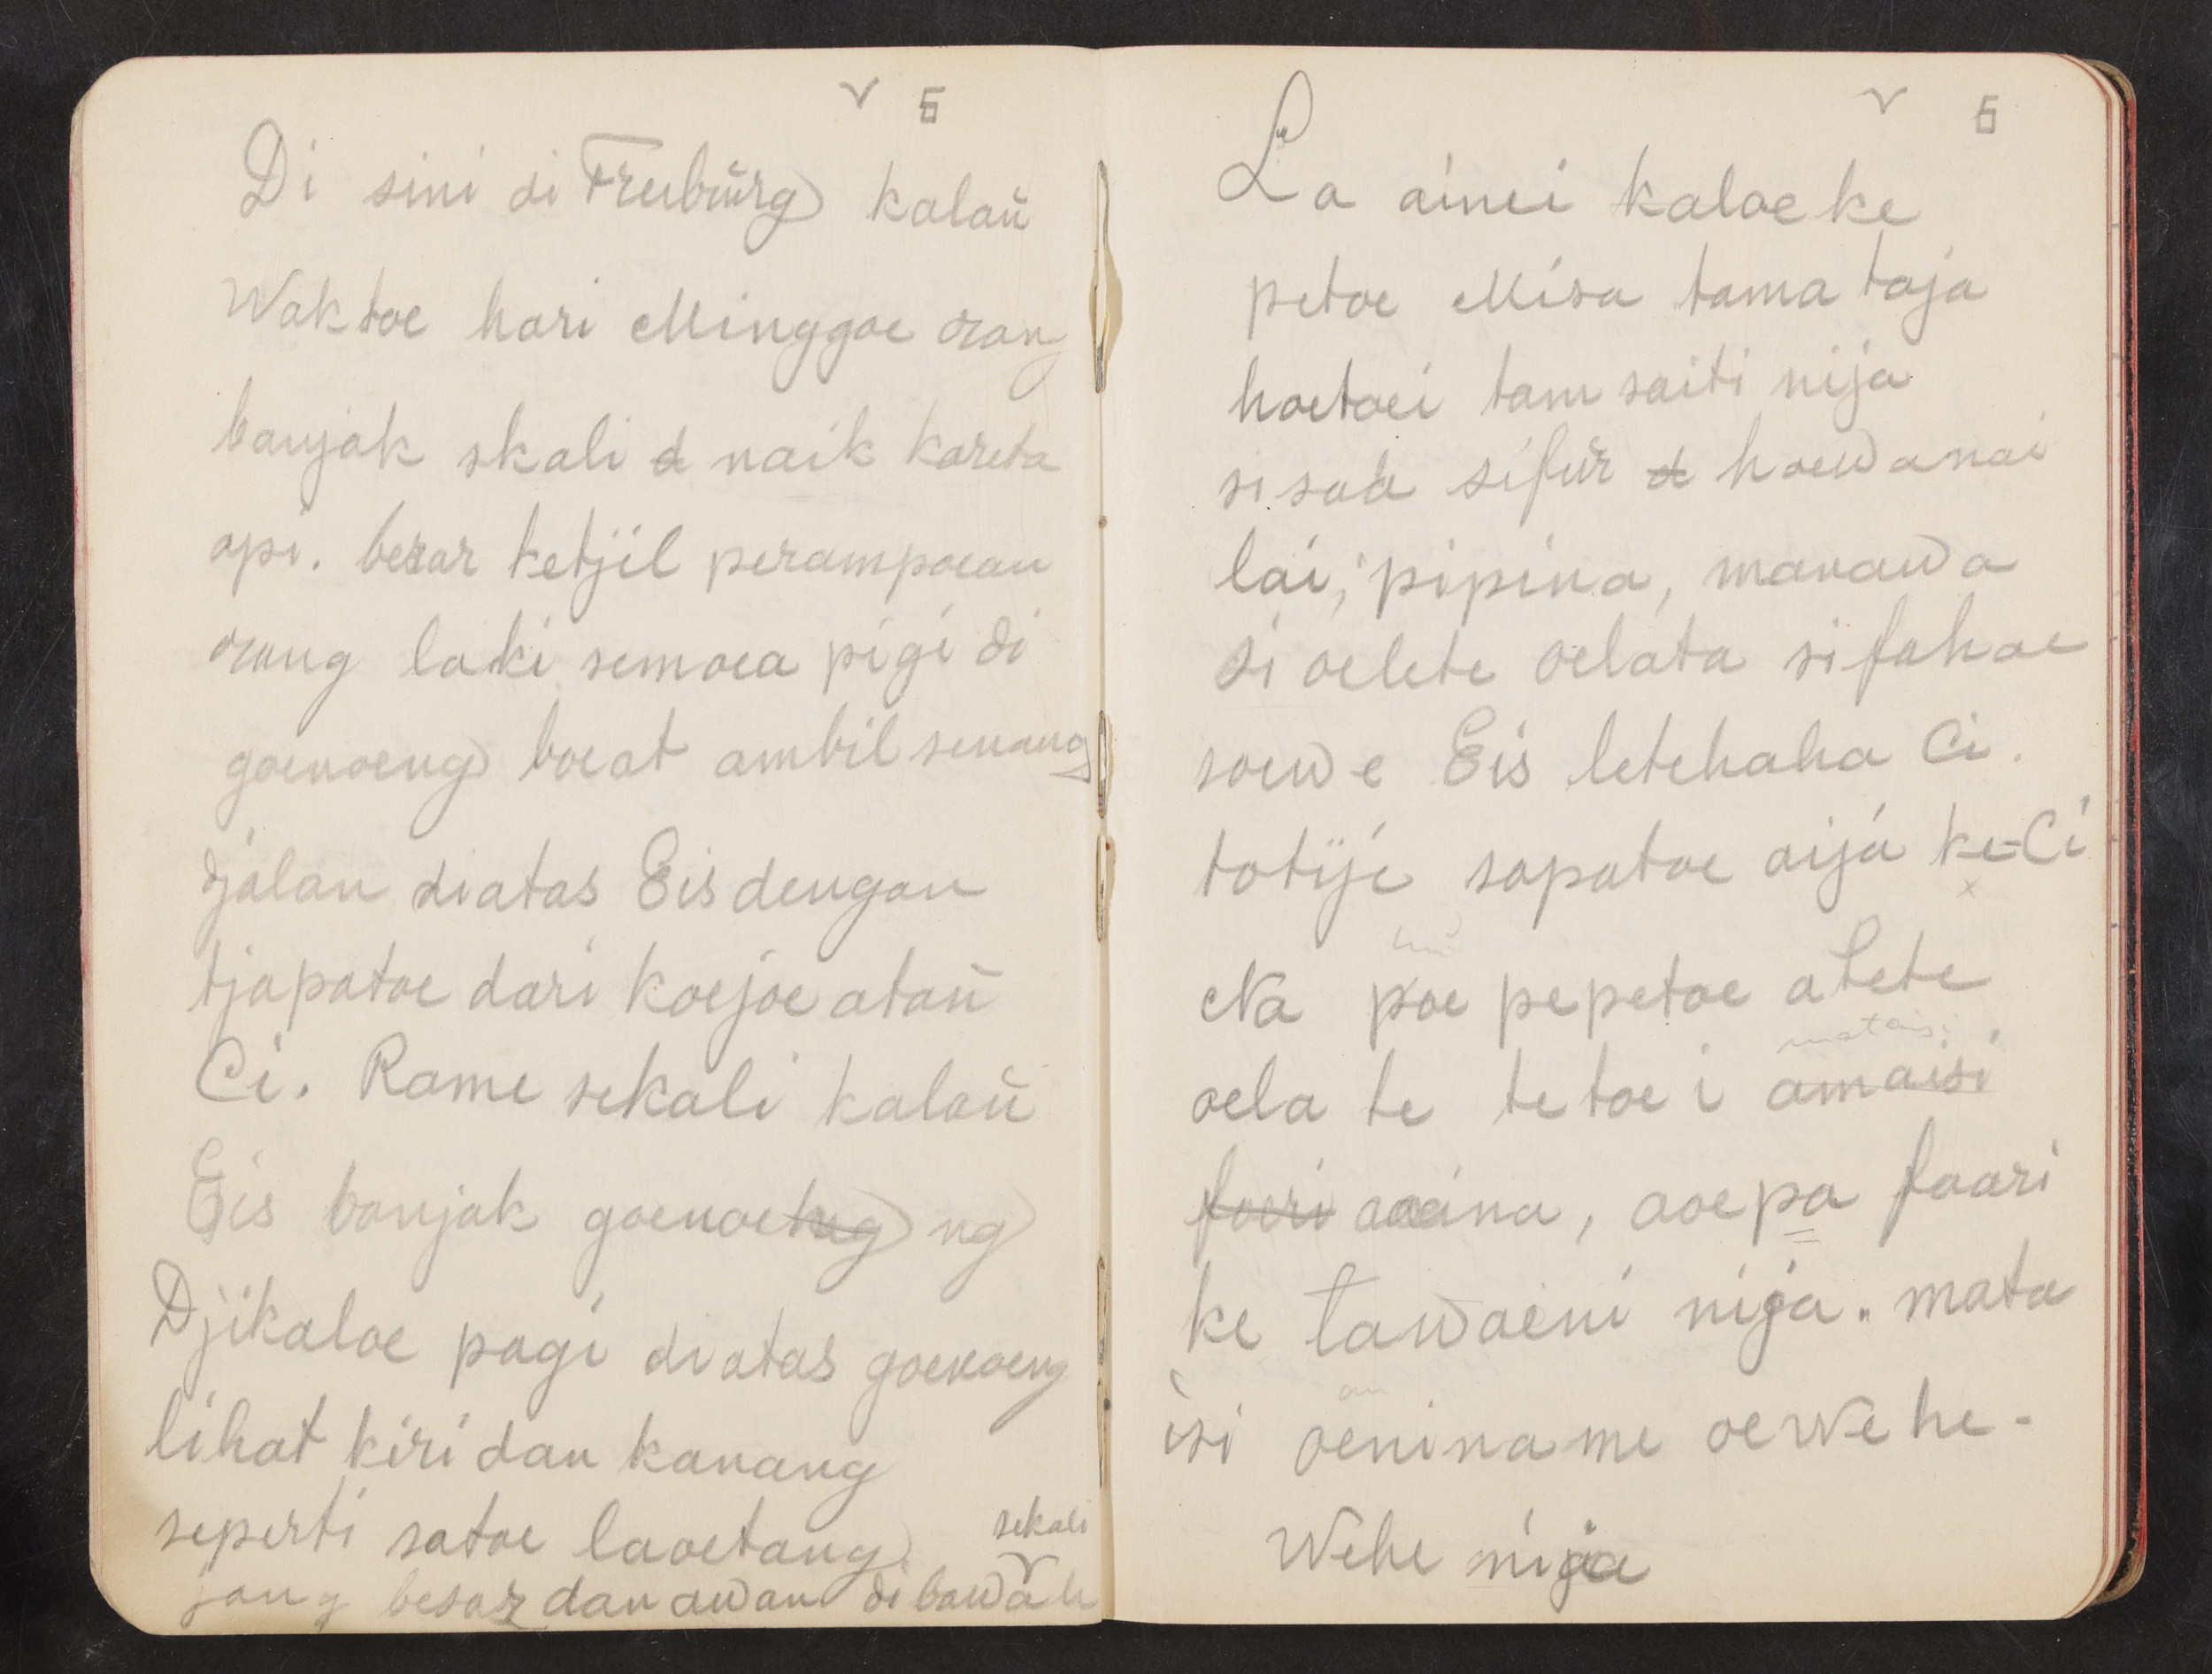 6
Di sini di Freiburg kalaŭ
Waktoe hari Minggoe oran
banjak skali d naik kareta
api. besar ketjil perampoean
orang laki semoea pigi di
goenoeng boeat ambil senang
djalan diatas Eis dengan
tjapatoe dari koejoe ataŭ
Ci. Rame sekali kalaŭ
Eis banjak goenoeng ng
Djikaloe pagi diatas goenoeng
lihat kiri dan kanang
seperti satoe laoetang
sekali
jang besar dan awan dibawah
6
La ainei kaloe ke
petoe Misa tama taja
hoetoei tam saiti nija
si saä sifur d hoewanai
lai, pipina, manawa
si oelete oelata si fahoe
soew e Eis letehaha Ci.
totije sapatoe aija ke-Ci
Na poe pepetoe a Lete
matais
oela te te toe i amaisi
foeri ina, aoepa faari
ke tawaeni nija. mata
isi oeniname oewehe-
Wehe nija